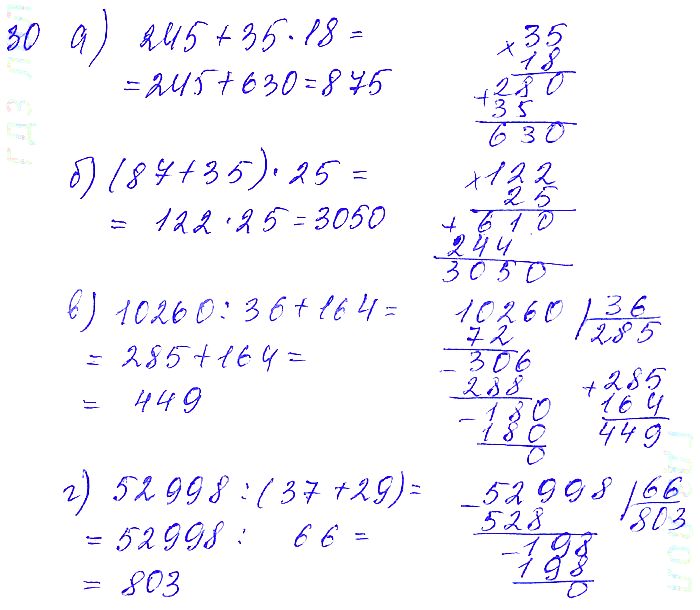 30 а) 245 + 35 · 18 =
= 245 + 630 = 875
× 35
18
+ 280
35
630
б) (87 + 35) · 25 =
= 122 · 25 = 3050
× 122
25
+ 610
244
3050
в) 10260 : 36 + 164 =
= 285 + 164 =
= 449
10260 | 36
72 285
- 306
288
- 180
180
0
+ 285
164
449
г) 52998 : (37 + 29) =
= 52998 : 66 =
= 803
- 52998 | 66
528 803
- 198
198
0